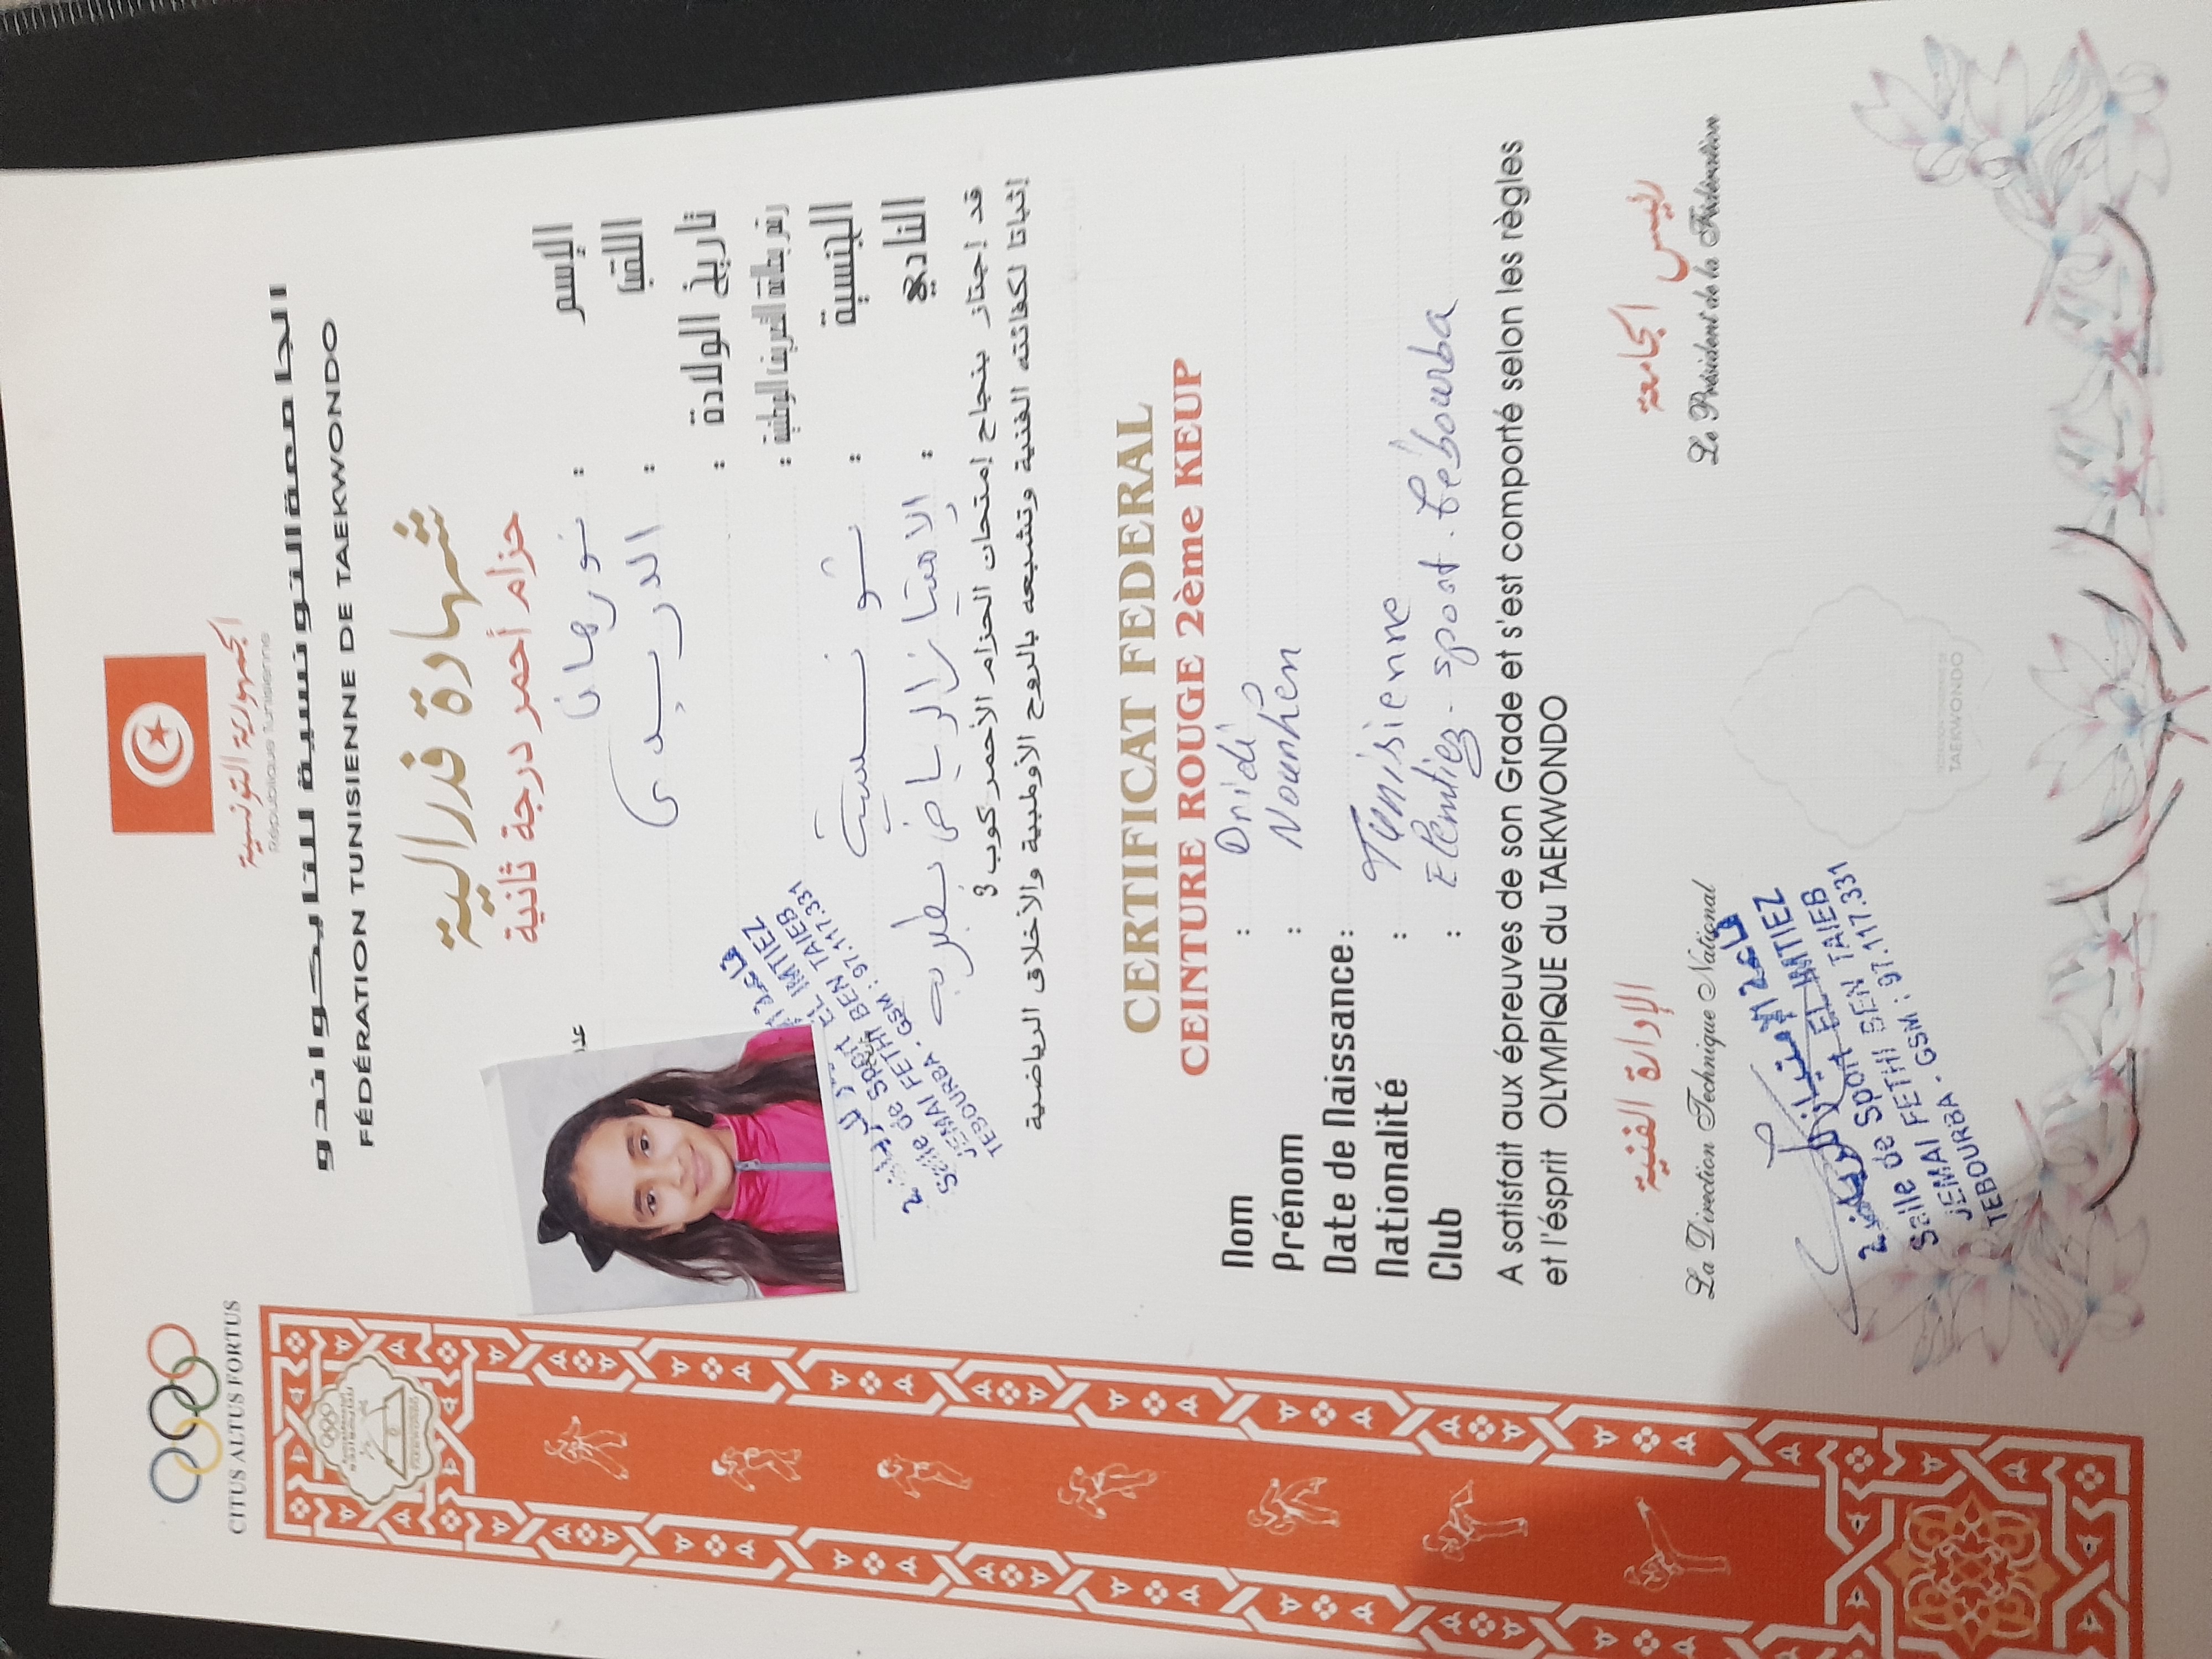 CITUS ALTUS FORTUS
الجمهورية التونسية
République Tunisienne
الجامعة التونسية للتايكواندو
FÉDÉRATION TUNISIENNE DE TAEKWONDO
شهادة فدرالية
حزام أحمر درجة ثانية
الإسم : نورهان
اللقب : الدريدي
تاريخ الولادة :
رقم بطاقة التعريف الوطنية :
الجنسية : تونسية
النادي : الامتياز الرياضي بطبربة
قد إجتاز بنجاح إمتحان الحزام الأحمر كوب 3
إثباتا لكفائته الفنية وتشبعه بالروح الأولمبية والأخلاق الرياضية
قاعة الامتياز للرياضة
Salle de Sport EL IMTIEZ
JEMAI FETHI BEN TAIEB
TEBOURBA . GSM : 97.117.331
CERTIFICAT FEDERAL
CEINTURE ROUGE 2ème KEUP
Nom : Dridi
Prénom : Nourhen
Date de Naissance :
Nationalité : Tunisienne
Club : Elemtiez - sport . tébourba
A satisfait aux épreuves de son Grade et s'est comporté selon les règles
et l'ésprit OLYMPIQUE du TAEKWONDO
الإدارة الفنية
La Direction Technique National
رئيس الجامعة
Le Président de la Fédération
قاعة الامتياز للرياضة
Salle de Sport EL IMTIEZ
JEMAI FETHI BEN TAIEB
TEBOURBA . GSM : 97.117.331
TAEKWONDO